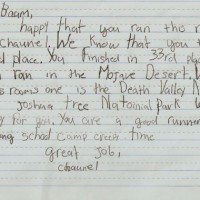 Baum,
happy that you ran this r
channel. We know that you t
d place. You finished in 33rd plac
n ran in the Mojave Desert. W
s rooms one is the Death Valley N
Joshua tree Natoinal Park w
y for you. You are a good runner
ng school camp creek time
great job,
channel